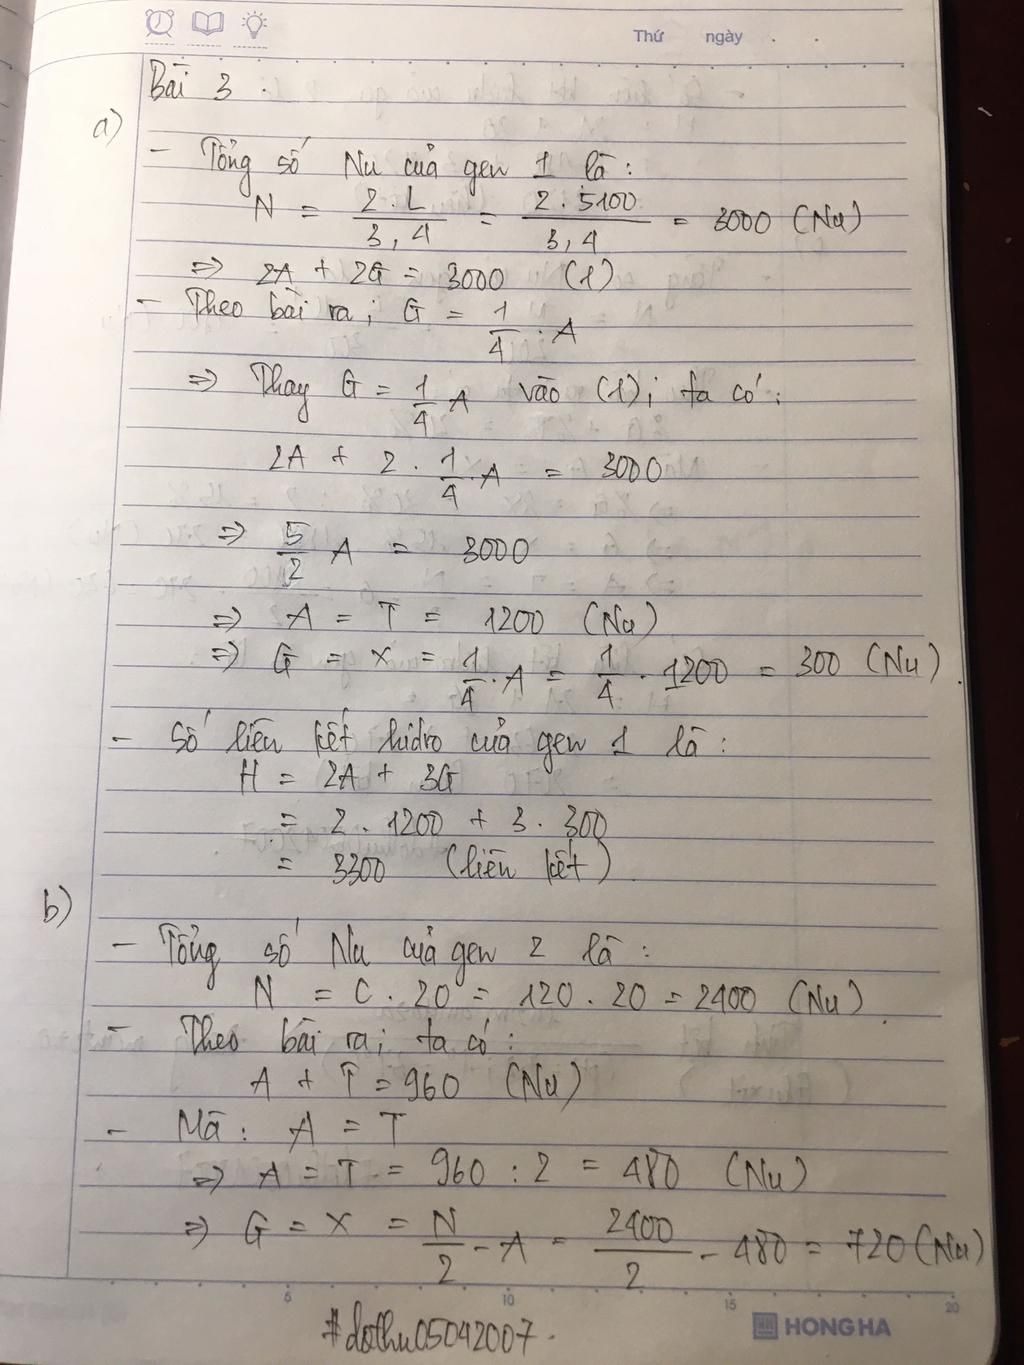 Thứ ngày . .
Bài 3 .
a)
- Tổng số Nu của gen 1 là :
N = 2 . L / 3,4 = 2 . 5100 / 3,4 = 3000 (Nu)
=> 2A + 2G = 3000 (1)
- Theo bài ra ; G = 1/4 . A
=> Thay G = 1/4 A vào (1) ; ta có :
2A + 2 . 1/4 . A = 3000
=> 5/2 A = 3000
=> A = T = 1200 (Nu)
=> G = X = 1/4 . A = 1/4 . 1200 = 300 (Nu) .
- Số liên kết hidro của gen 1 là :
H = 2A + 3G
= 2 . 1200 + 3 . 300
= 3300 (liên kết)
b)
- Tổng số Nu của gen 2 là :
N = C . 20 = 120 . 20 = 2400 (Nu) .
- Theo bài ra ; ta có :
A + T = 960 (Nu)
- Mà : A = T
=> A = T = 960 : 2 = 480 (Nu)
=> G = X = N/2 - A = 2400/2 - 480 = 720 (Nu)
5 10 15 20
#dothu05042007 .
HONG HA